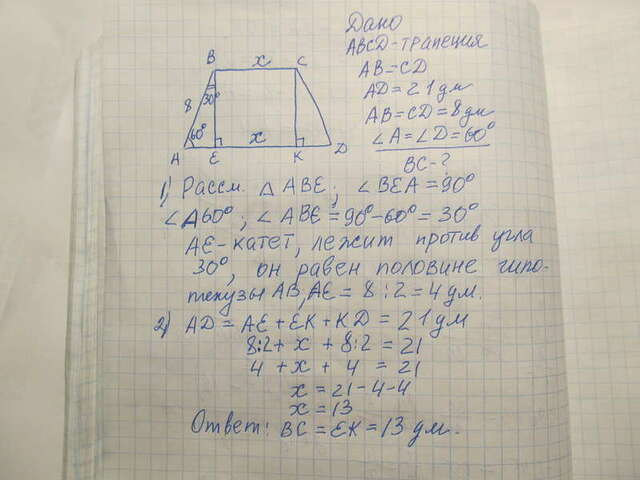 Дано
ABCD-трапеция
AB=CD
AD=21дм
AB=CD=8дм
∠A=∠D=60°
BC-?
B x C
8 30°
60° x
A E K D
1) Рассм. △ ABE; ∠BEA=90°
∠A60°; ∠ABE=90°-60°=30°
AE-катет, лежит против угла
30°, он равен половине гипо-
тенузы AB, AE=8:2=4дм.
2) AD=AE+EK+KD=21дм
8:2+x+8:2=21
4+x+4=21
x=21-4-4
x=13
Ответ: BC=EK=13дм.